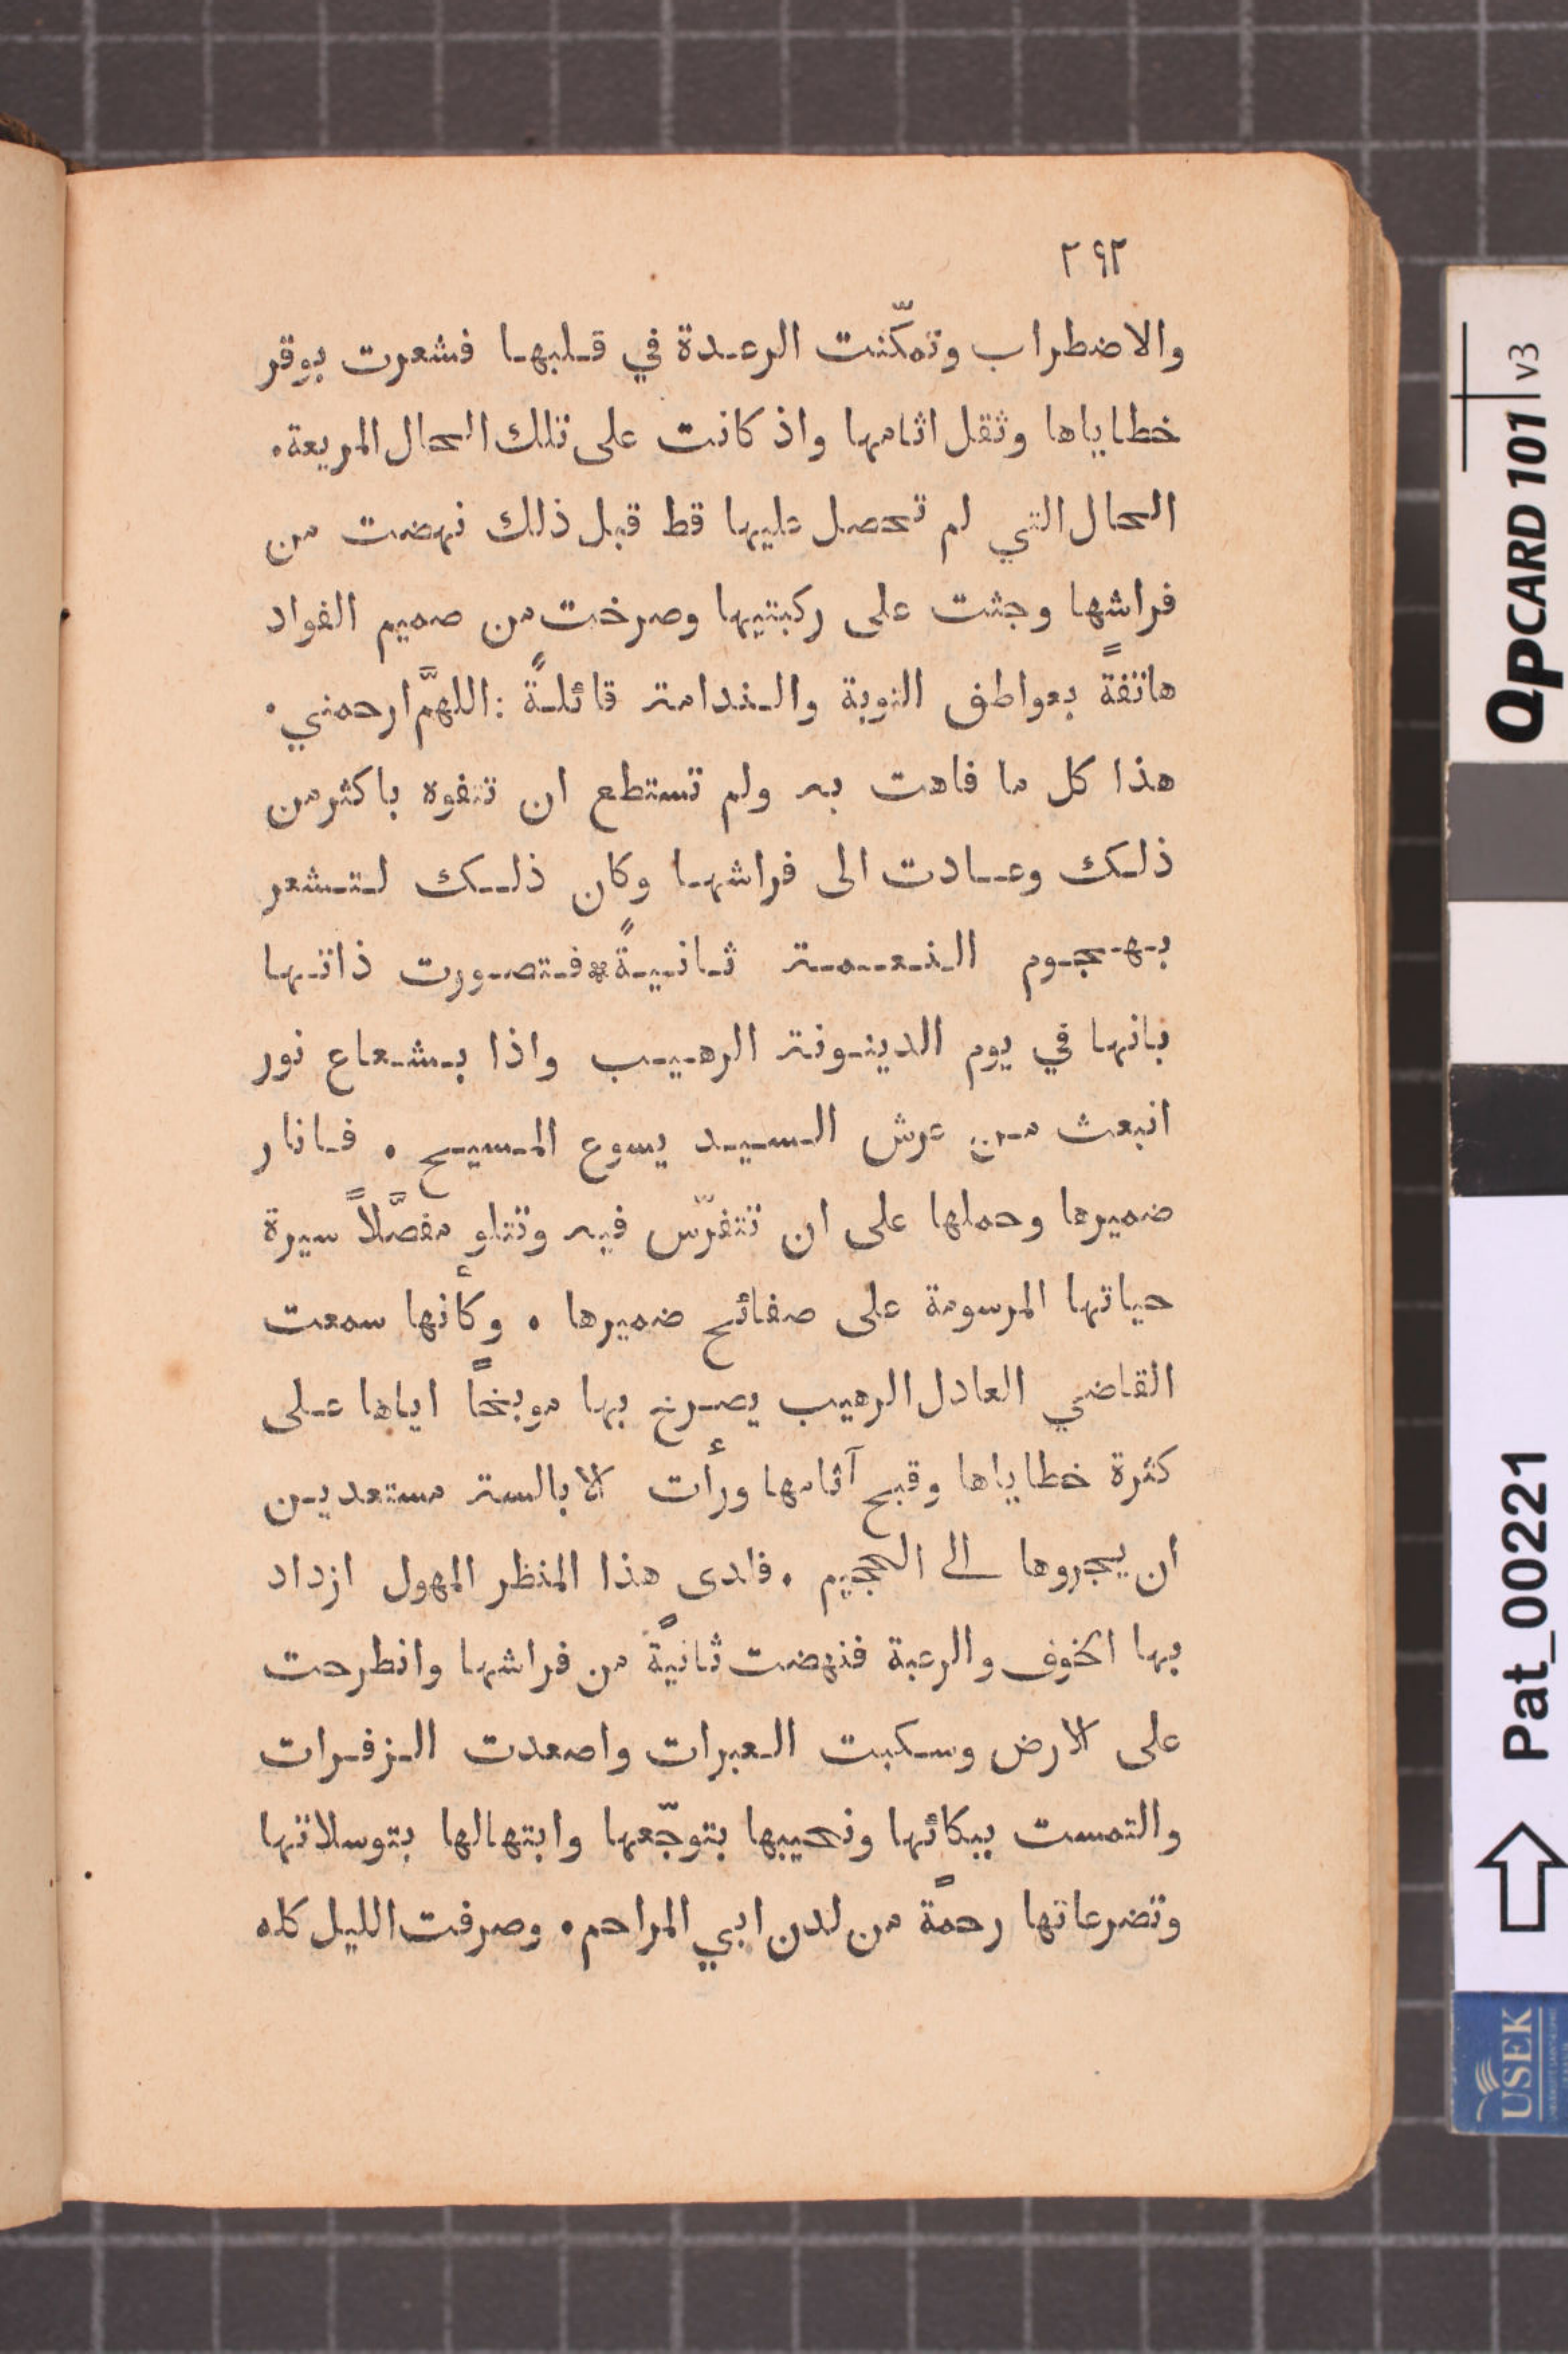 ٢٩٢
والاضطراب وتمكّنت الرعدة في قلبها فشعرت بوقر
خطاياها وثقل اثامها واذ كانت على تلك الحال المريعة.
الحال التي لم تحصل عليها قط قبل ذلك نهضت من
فراشها وجثت على ركبتيها وصرخت من صميم الفواد
هاتفةً بعواطف التوبة والندامة قائلةً : اللهمَّ ارحمني.
هذا كل ما فاهت به ولم تستطع ان تتفوه باكثر من
ذلك وعادت الى فراشها وكان ذلك لتشعر
بهجوم النعمة ثانيةً * فتصورت ذاتها
بانها في يوم الدينونة الرهيب واذا بشعاع نور
انبعث من عرش السيد يسوع المسيح . فانار
ضميرها وحملها على ان تتفرّس فيه وتتلو مفصَّلاً سيرة
حياتها المرسومة على صفائح ضميرها . وكأنها سمعت
القاضي العادل الرهيب يصرخ بها موبخاً اياها على
كثرة خطاياها وقبح آثامها ورأت الابالسة مستعدين
ان يجروها الى الجحيم . فلدى هذا المنظر المهول ازداد
بها الخوف والرعبة فنهضت ثانيةً من فراشها وانطرحت
على الارض وسكبت العبرات واصعدت الزفرات
والتمست ببكائها ونحيبها بتوجّعها وابتهالها بتوسلاتها
وتضرعاتها رحمةً من لدن ابي المراحم . وصرفت الليل كله
QPCARD 101 v3
Pat_00221
USEK